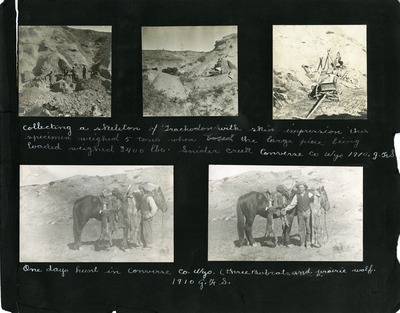 Collecting a skeleton of Trachodon with skin impression this
specimen weighed 5 tons when boxed the large piece being
loaded weighed 3400 lbs. Snider Creek Converse Co Wyo 1910. G.F.S.
One days hunt in Converse Co. Wyo. (three Bobcats and prairie wolf.
1910 G.F.S.